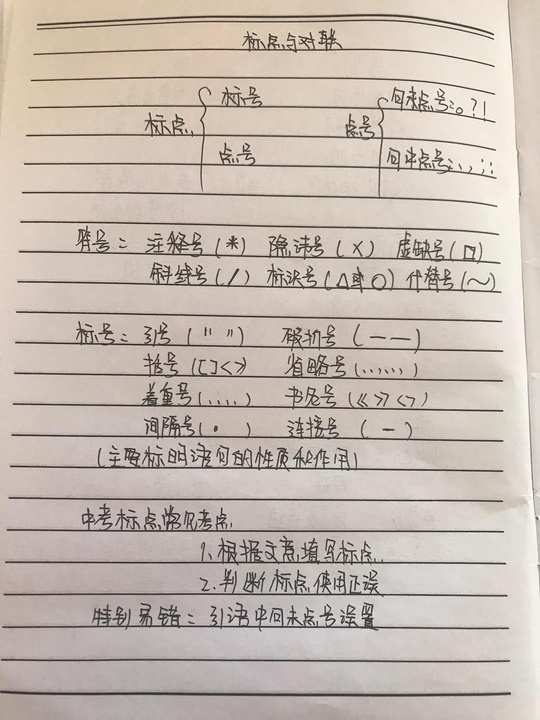 标点与对联
标号 句末点号:。?!
标点 点号
点号 句中点号:、,;:
符号: 注释号(*) 隐讳号(×) 虚缺号(□)
斜线号(/) 标识号(△或○) 代替号(~)
标号: 引号(" ") 破折号(——)
括号([]<>) 省略号(……)
着重号(....) 书名号(《》<>)
间隔号(·) 连接号(-)
(主要标明语句的性质和作用)
中考标点常见考点
1、根据文意填写标点
2.判断标点使用正误
特别易错: 引语中句末点号误置